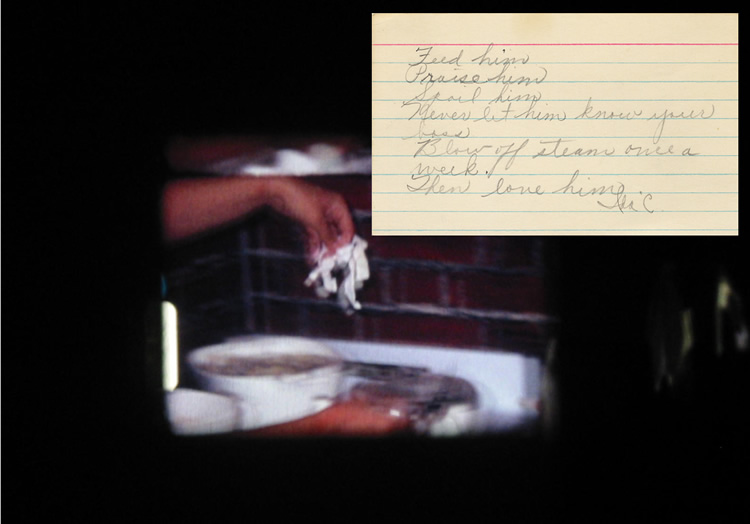 Feed him
Praise him
Spoil him
Never let him know your
boss
Blow off steam once a
week.
Then love him.